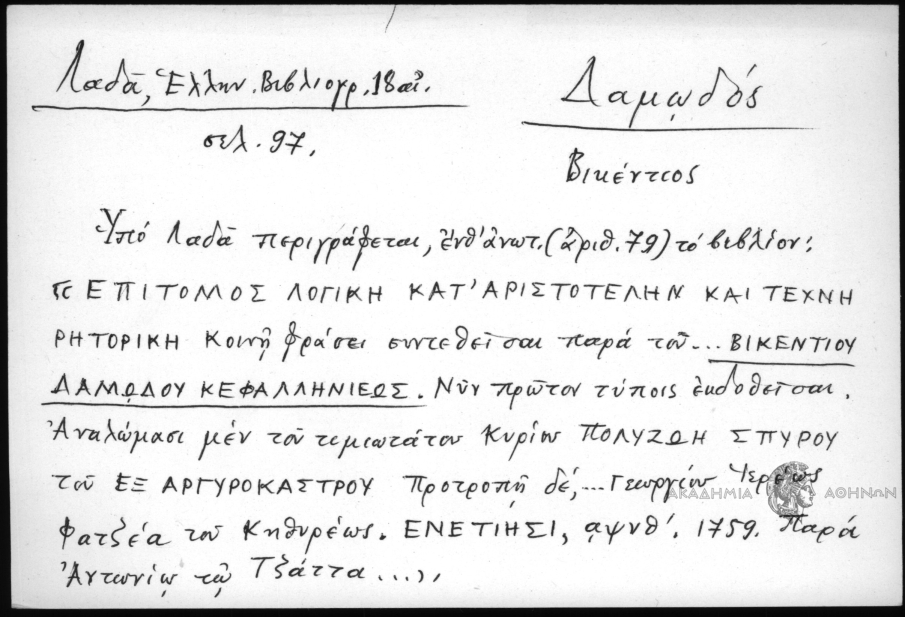 Λαδᾶ, Ἑλλην. Βιβλιογρ. 18 αἰ.
σελ. 97.
Δαμῳδός
Βικέντιος
Ὑπό Λαδᾶ περιγράφεται, ἔνθ' ἀνωτ. (ἀριθ. 79) τό βιβλίον:
"ΕΠΙΤΟΜΟΣ ΛΟΓΙΚΗ ΚΑΤ' ΑΡΙΣΤΟΤΕΛΗΝ ΚΑΙ ΤΕΧΝΗ
ΡΗΤΟΡΙΚΗ Κοινῇ φράσει συντεθεῖσαι παρά τοῦ... ΒΙΚΕΝΤΙΟΥ
ΔΑΜῼΔΟΥ ΚΕΦΑΛΛΗΝΙΕΩΣ. Νῦν πρῶτον τύποις ἐκδοθεῖσαι.
Ἀναλώμασι μέν τοῦ τιμιωτάτου Κυρίου ΠΟΛΥΖΩΗ ΣΠΥΡΟΥ
τοῦ ΕΞ ΑΡΓΥΡΟΚΑΣΤΡΟΥ Προτροπῇ δέ,... Γεωργίου Ἱερέως
Φατζέα τοῦ Κηθυρέως. ΕΝΕΤΙΗΣΙ, ᾳψνθ'. 1759. Παρά
Ἀντωνίῳ τῷ Τζάττα...,,
ΑΚΑΔΗΜΙΑ ΑΘΗΝΩΝ